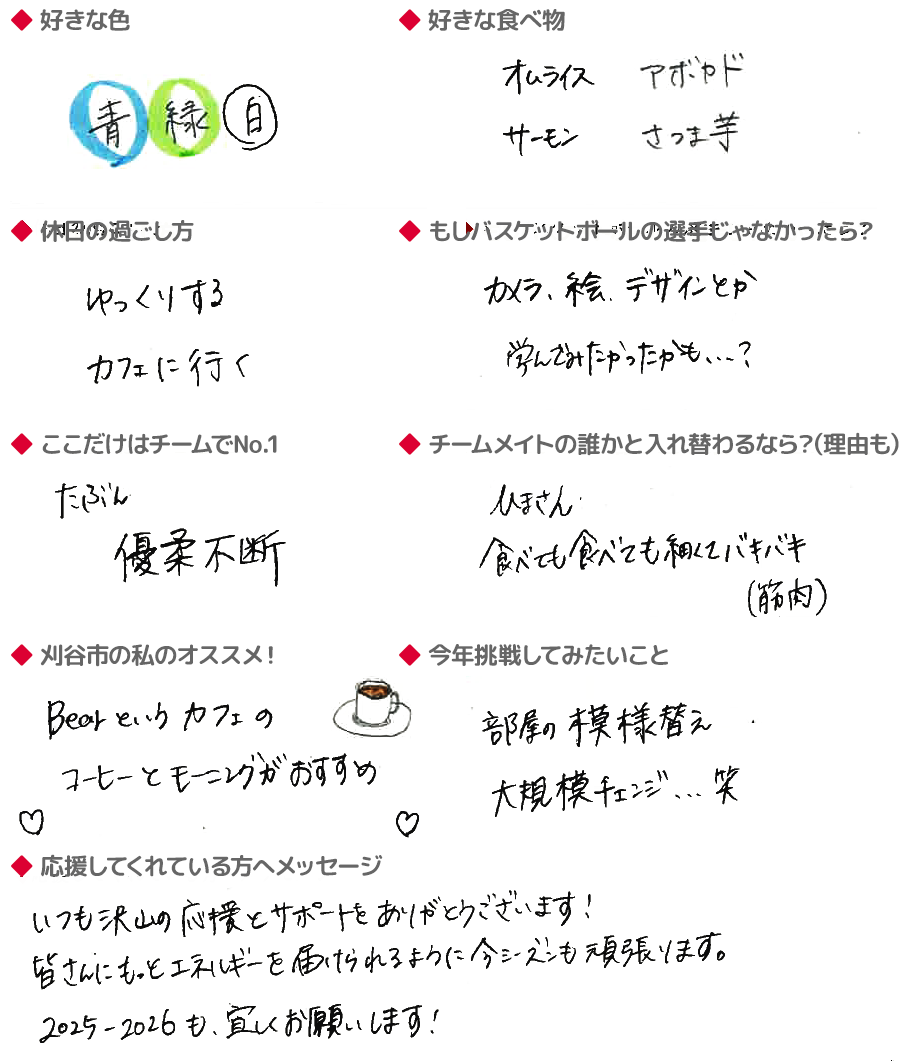 ◆ 好きな色
青 緑 白
◆ 好きな食べ物
オムライス アボカド
サーモン さつま芋
◆ 休日の過ごし方
ゆっくりする
カフェに行く
◆ もしバスケットボールの選手じゃなかったら?
カメラ、絵、デザインとか
学んでみたかったかも...?
◆ ここだけはチームでNo.1
たぶん
優柔不断
◆ チームメイトの誰かと入れ替わるなら?(理由も)
ひまさん
食べても食べても細くてバキバキ
(筋肉)
◆ 刈谷市の私のオススメ!
Bearというカフェの
コーヒーとモーニングがおすすめ
◆ 今年挑戦してみたいこと
部屋の模様替え
大規模チェンジ...笑
◆ 応援してくれている方へメッセージ
いつも沢山の応援とサポートをありがとうございます!
皆さんにもっとエネルギーを届けられるように今シーズンも頑張ります。
2025-2026も、宜しくお願いします!